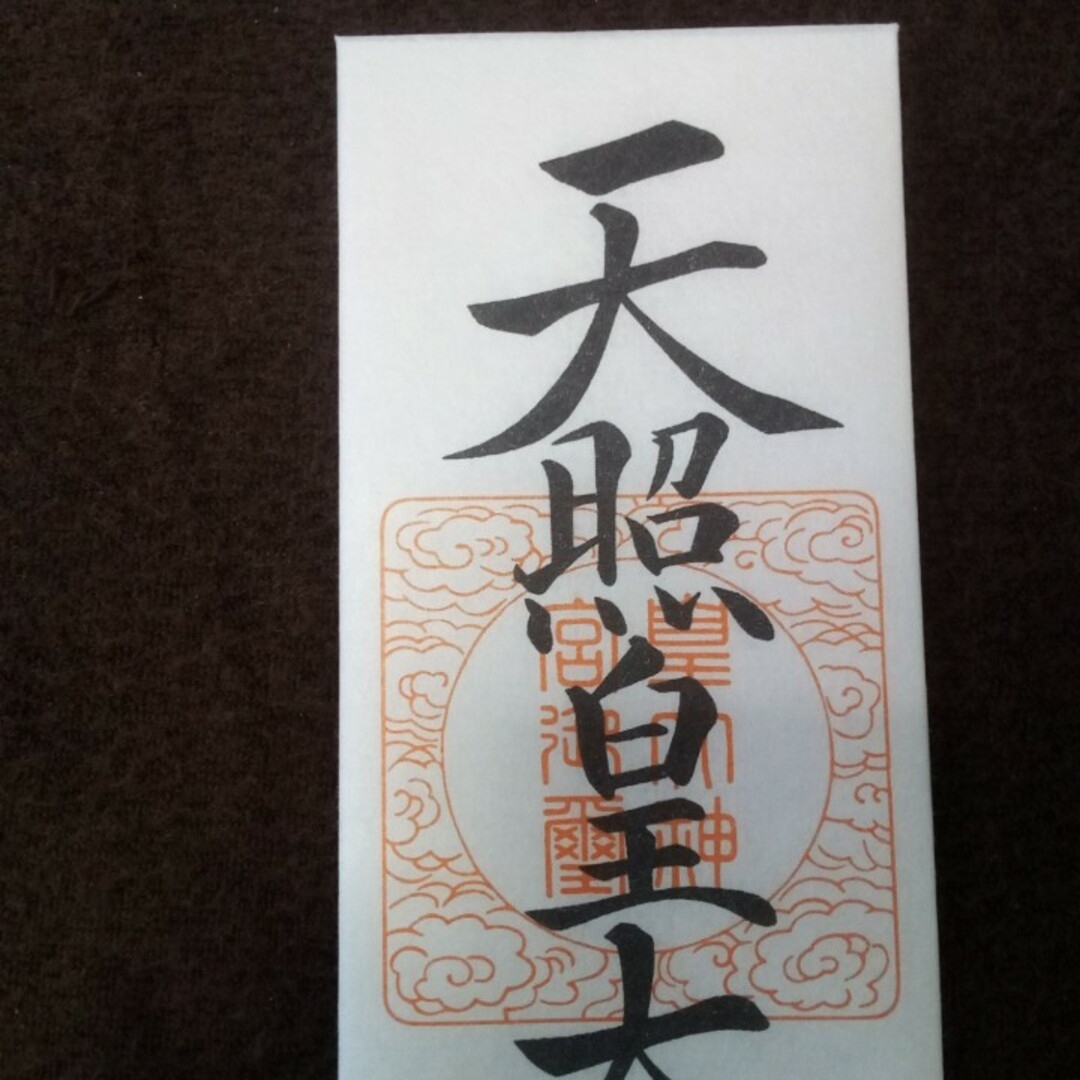 天照皇大
皇大神
宮御璽